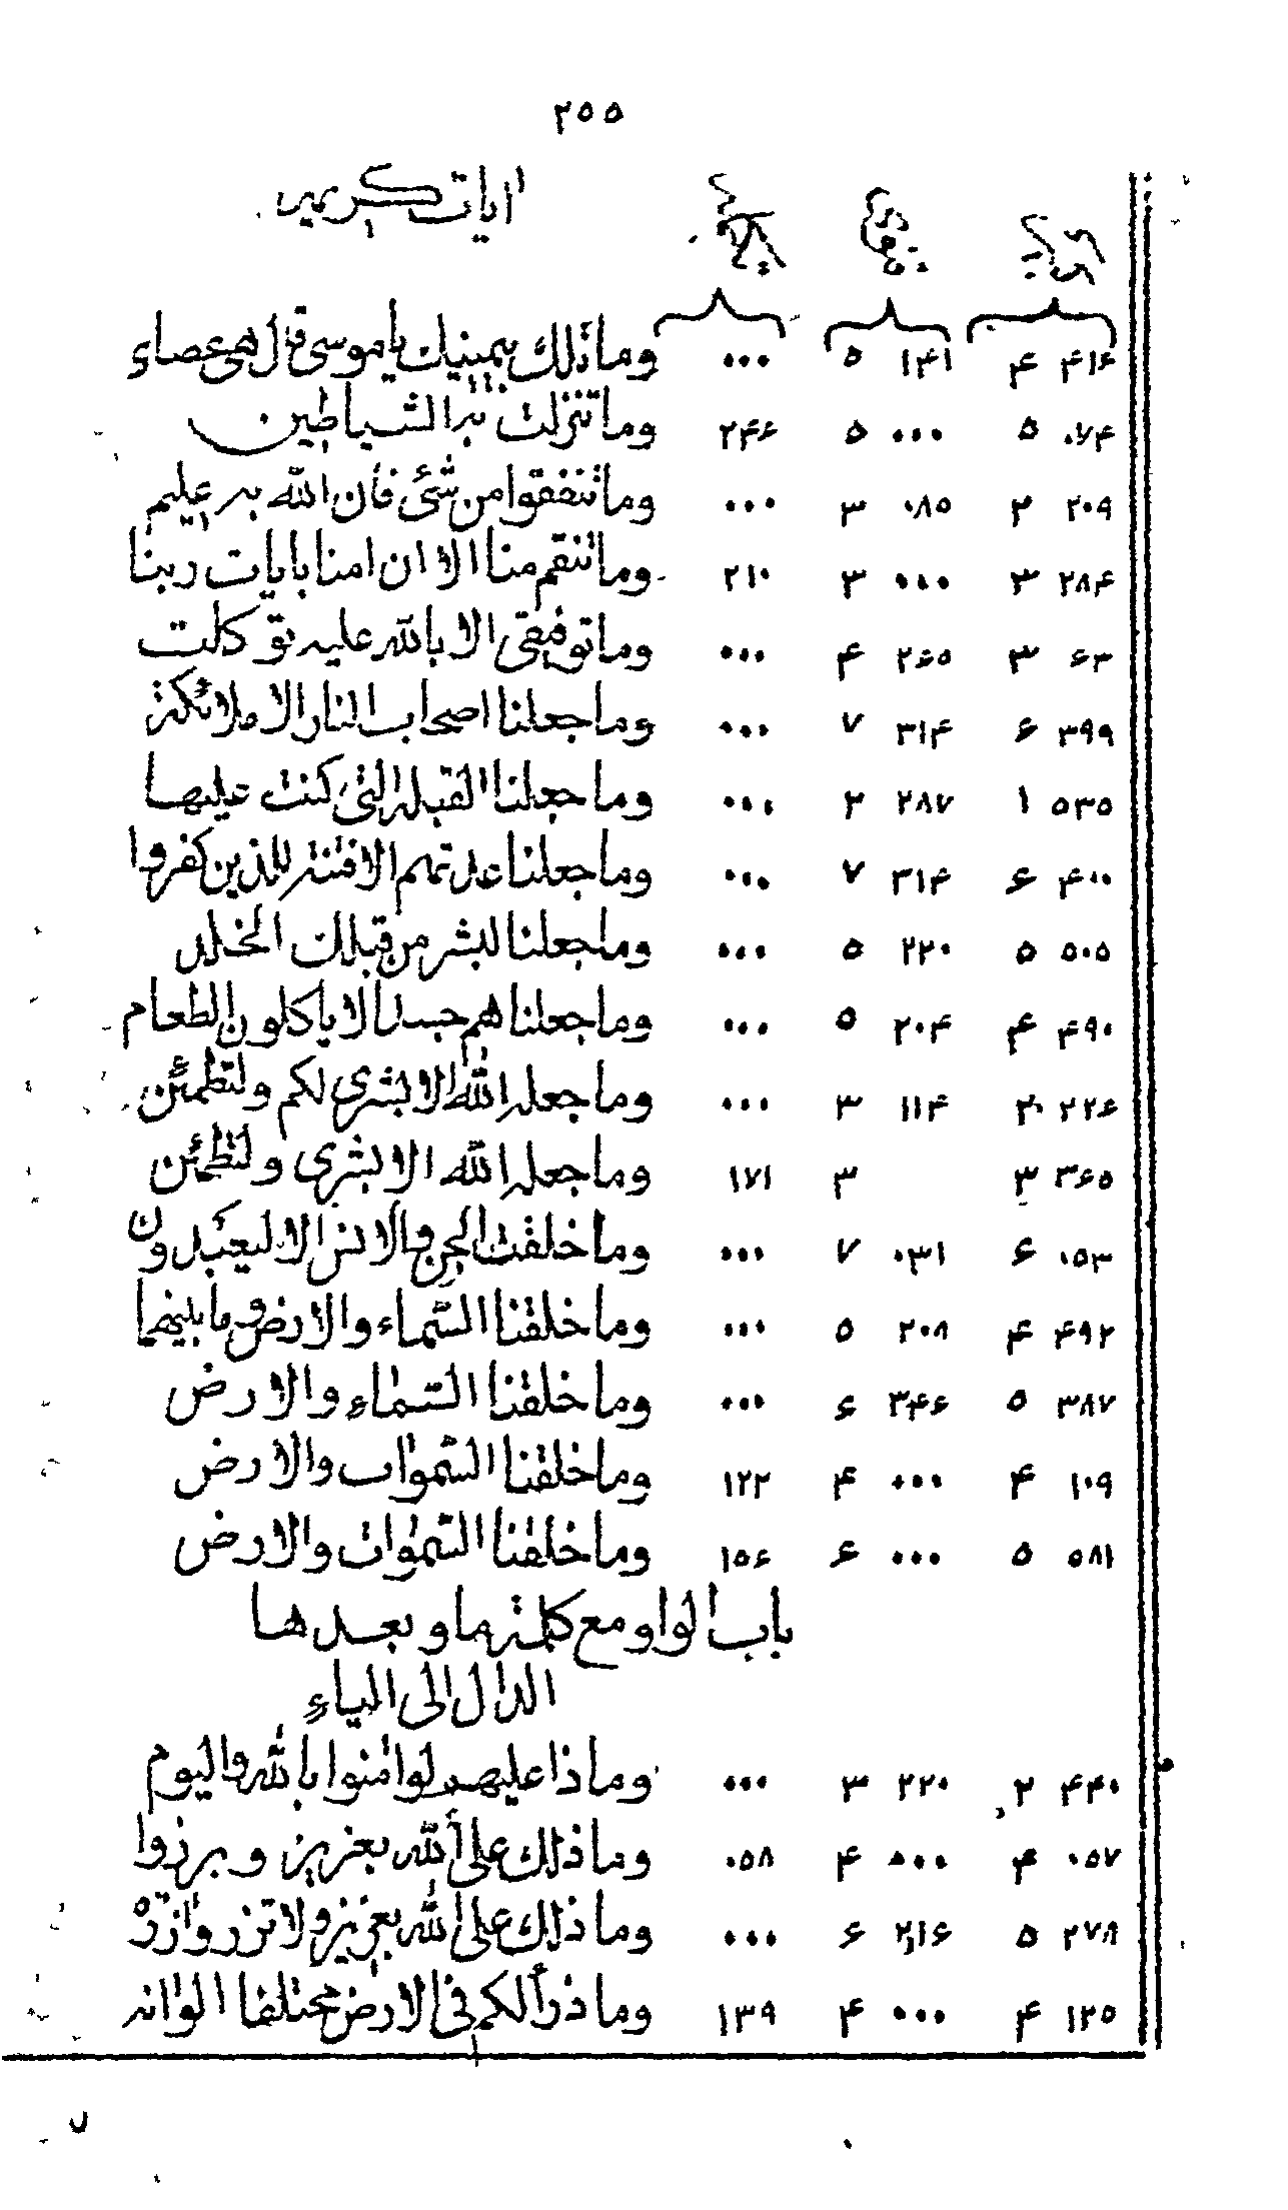 ۲۵۵
ایات کریمه
۴۱۶ ۴ ۱۴۱ ۵ ۰۰۰ وما تلك بیمینك یا موسی قال هی عصای
۰۷۴ ۵ ۰۰۰ ۵ ۲۴۶ وما تنزلت به الشیاطین
۲۰۹ ۲ ۰۸۵ ۳ ۰۰۰ وما تنفقوا من شئ فأن الله به علیم
۲۸۴ ۳ ۰۰۰ ۳ ۲۱۰ وما تنقم منا الا ان امنا بایات ربنا
۶۳ ۳ ۲۶۵ ۴ ۰۰۰ وما توفیقی الا بالله علیه توکلت
۳۹۹ ۶ ۳۱۴ ۷ ۰۰۰ وما جعلنا اصحاب النار الا ملائکة
۵۳۵ ۱ ۲۸۷ ۲ ۰۰۰ وما جعلنا القبلة التی کنت علیها
۴۰۰ ۶ ۳۱۴ ۷ ۰۰۰ وما جعلنا عدتهم الا فتنة للذین کفروا
۵۰۵ ۵ ۲۲۰ ۵ ۰۰۰ وما جعلنا لبشر من قبلك الخلد
۴۹۰ ۴ ۲۰۴ ۵ ۰۰۰ وما جعلناهم جسدا لا یاکلون الطعام
۲۲۶ ۲ ۱۱۴ ۳ ۰۰۰ وما جعله الله الا بشری لکم ولتطمئن
۳۶۵ ۳ ۳ ۱۷۱ وما جعله الله الا بشری ولتطمئن
۰۵۳ ۶ ۰۳۱ ۷ ۰۰۰ وما خلقت الجن والانس الا لیعبدون
۴۹۲ ۴ ۲۰۸ ۵ ۰۰۰ وما خلقنا السماء والارض وما بینهما
۳۸۷ ۵ ۳۴۶ ۶ ۰۰۰ وما خلقنا السماء والارض
۱۰۹ ۴ ۰۰۰ ۴ ۱۲۲ وما خلقنا السموات والارض
۵۸۱ ۵ ۰۰۰ ۶ ۱۵۶ وما خلقنا السموات والارض
باب الواو مع کلمة ما و بعدها
الدال الی الیاء
۴۴۰ ۲ ۲۲۰ ۳ ۰۰۰ وما ذا علیهم لو امنوا بالله والیوم
۰۵۷ ۴ ۰۰۰ ۴ ۰۵۸ وما ذلك علی الله بعزیز و برزوا
۲۷۸ ۵ ۲۱۶ ۶ ۰۰۰ وما ذلك علی الله بعزیز ولا تزر وازرة
۱۲۵ ۴ ۰۰۰ ۴ ۱۳۹ وما ذرأ لکم فی الارض مختلفا الوانه